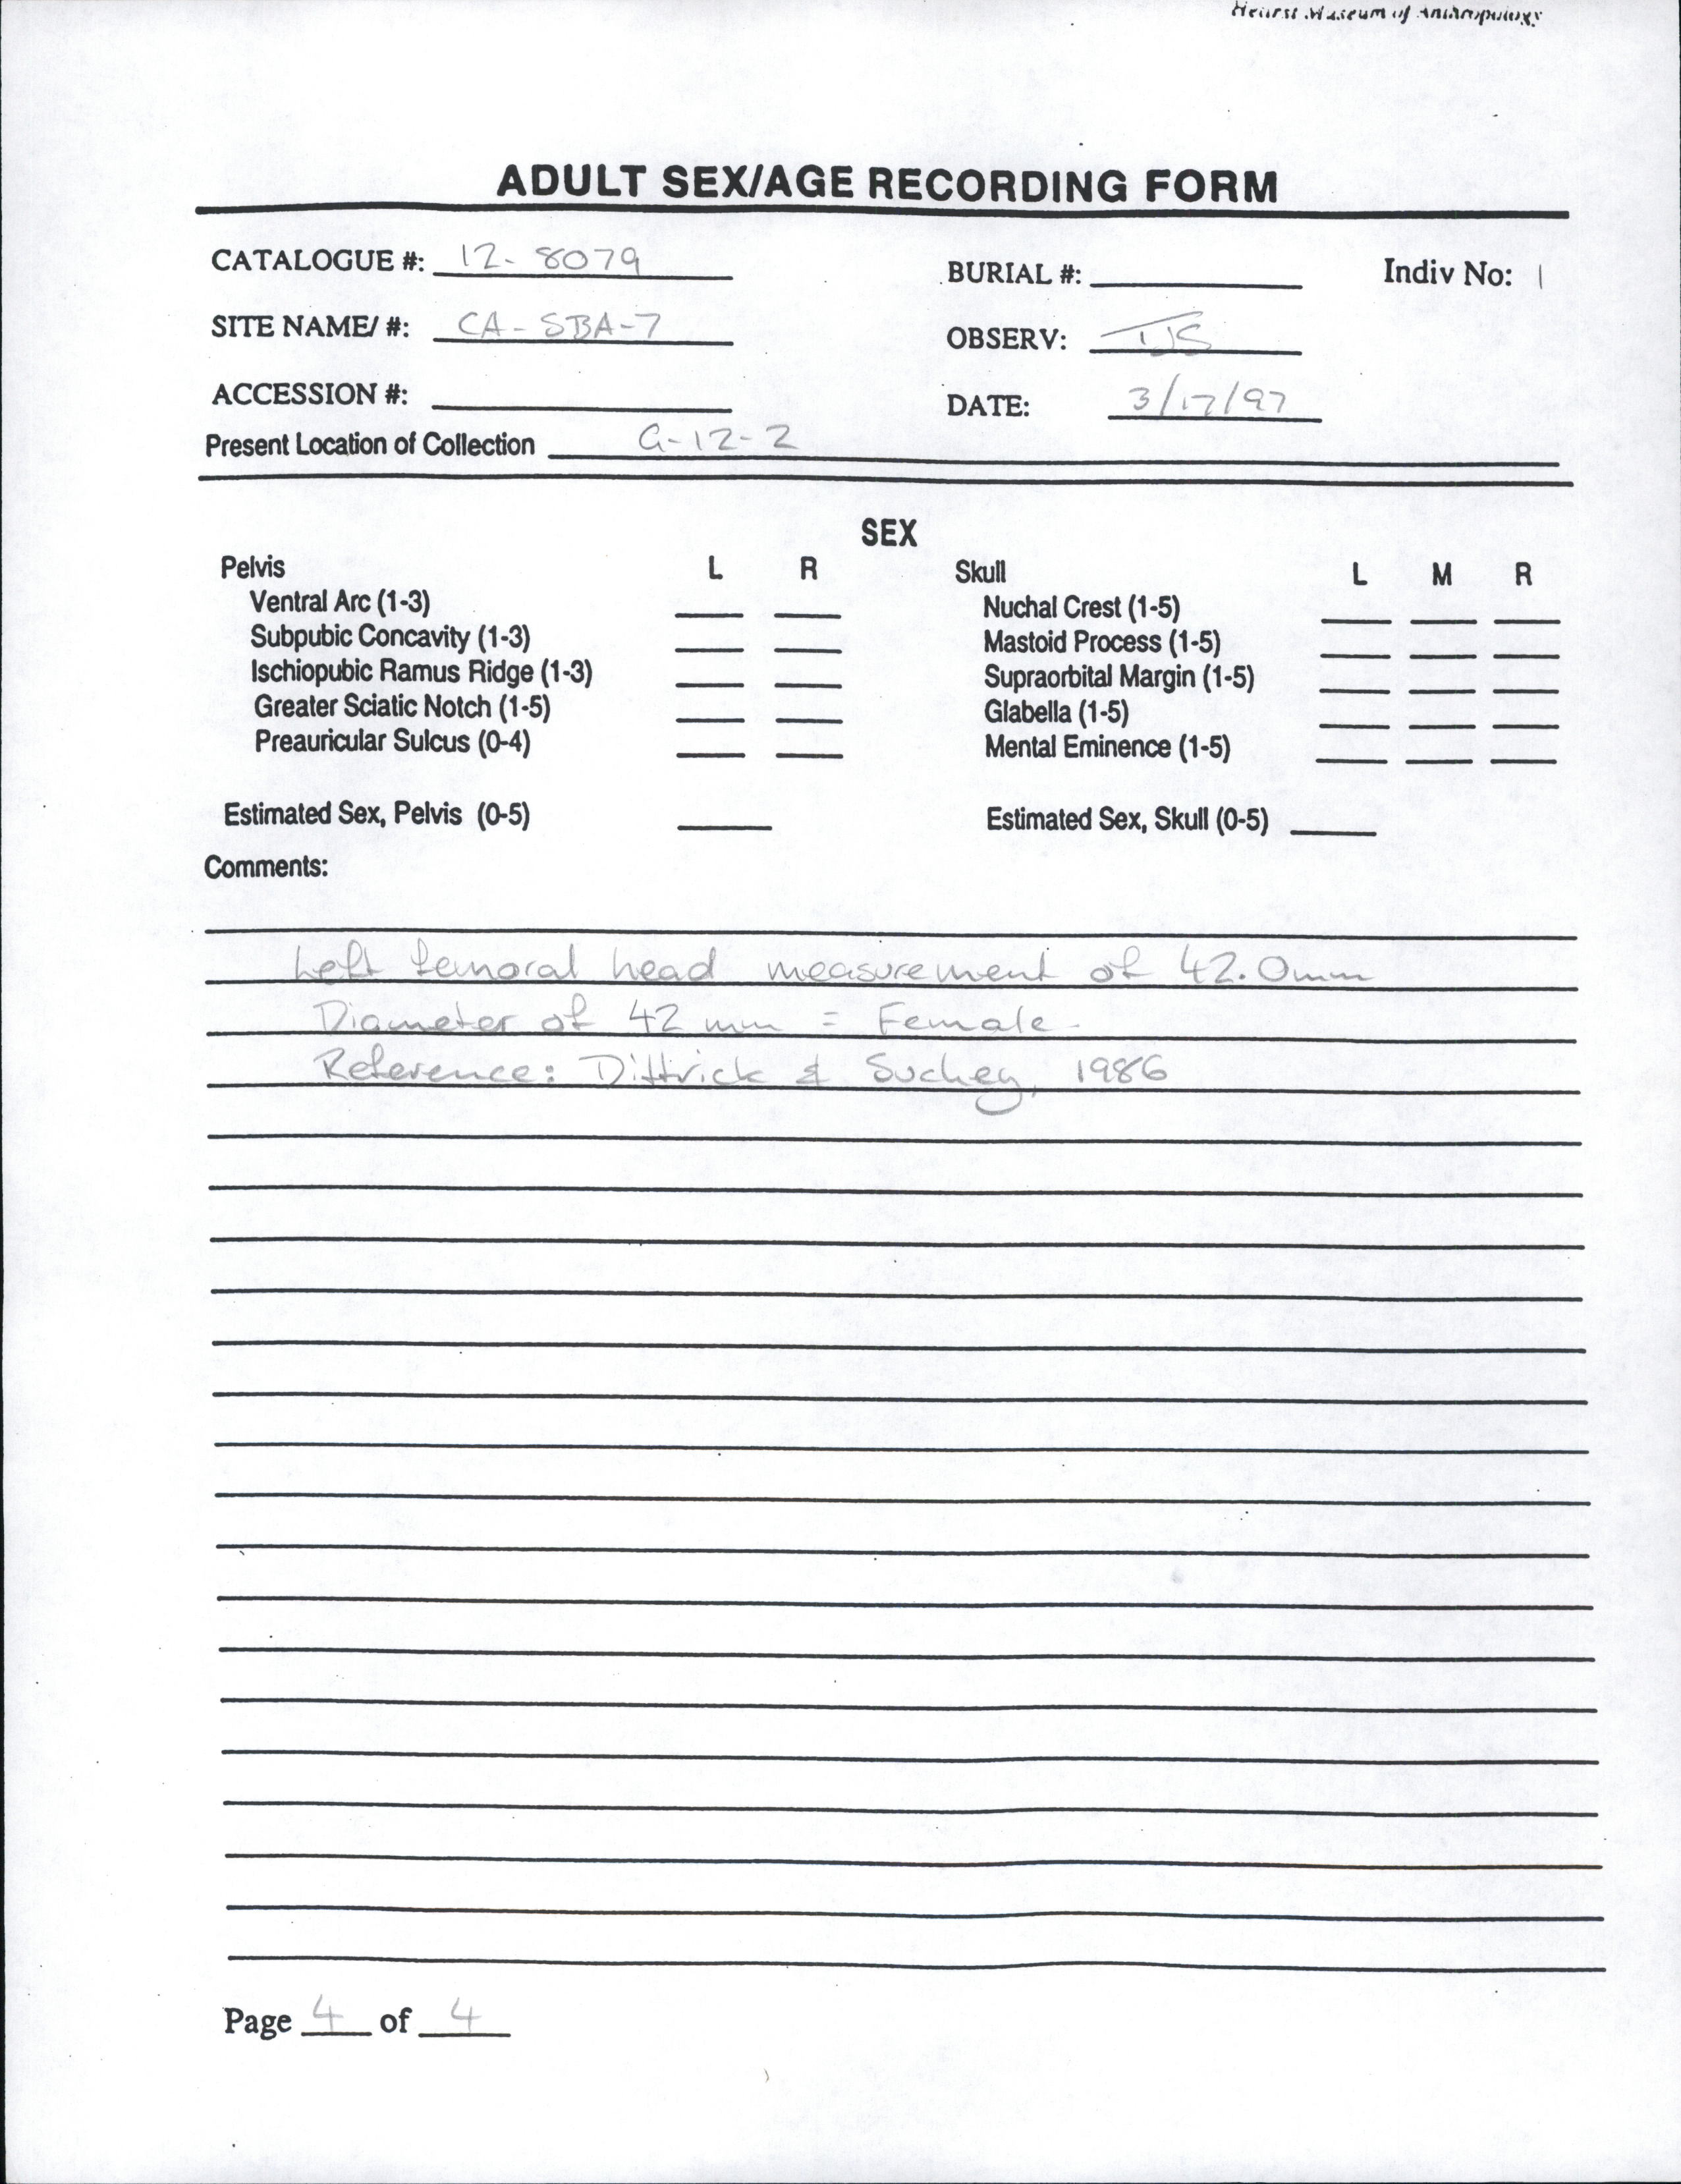 Hearst Museum of Anthropology
ADULT SEX/AGE RECORDING FORM
CATALOGUE #: 12-8079
BURIAL #:
Indiv No: 1
SITE NAME/ #: CA-SBA-7
OBSERV: TJS
ACCESSION #:
DATE: 3/17/97
Present Location of Collection G-12-2
SEX
Pelvis L R
Ventral Arc (1-3)
Subpubic Concavity (1-3)
Ischiopubic Ramus Ridge (1-3)
Greater Sciatic Notch (1-5)
Preauricular Sulcus (0-4)
Estimated Sex, Pelvis (0-5)
Skull L M R
Nuchal Crest (1-5)
Mastoid Process (1-5)
Supraorbital Margin (1-5)
Glabella (1-5)
Mental Eminence (1-5)
Estimated Sex, Skull (0-5)
Comments:
Left femoral head measurement of 42.0mm
Diameter of 42 mm = Female.
Reference: Dittrick & Suchey, 1986
Page 4 of 4